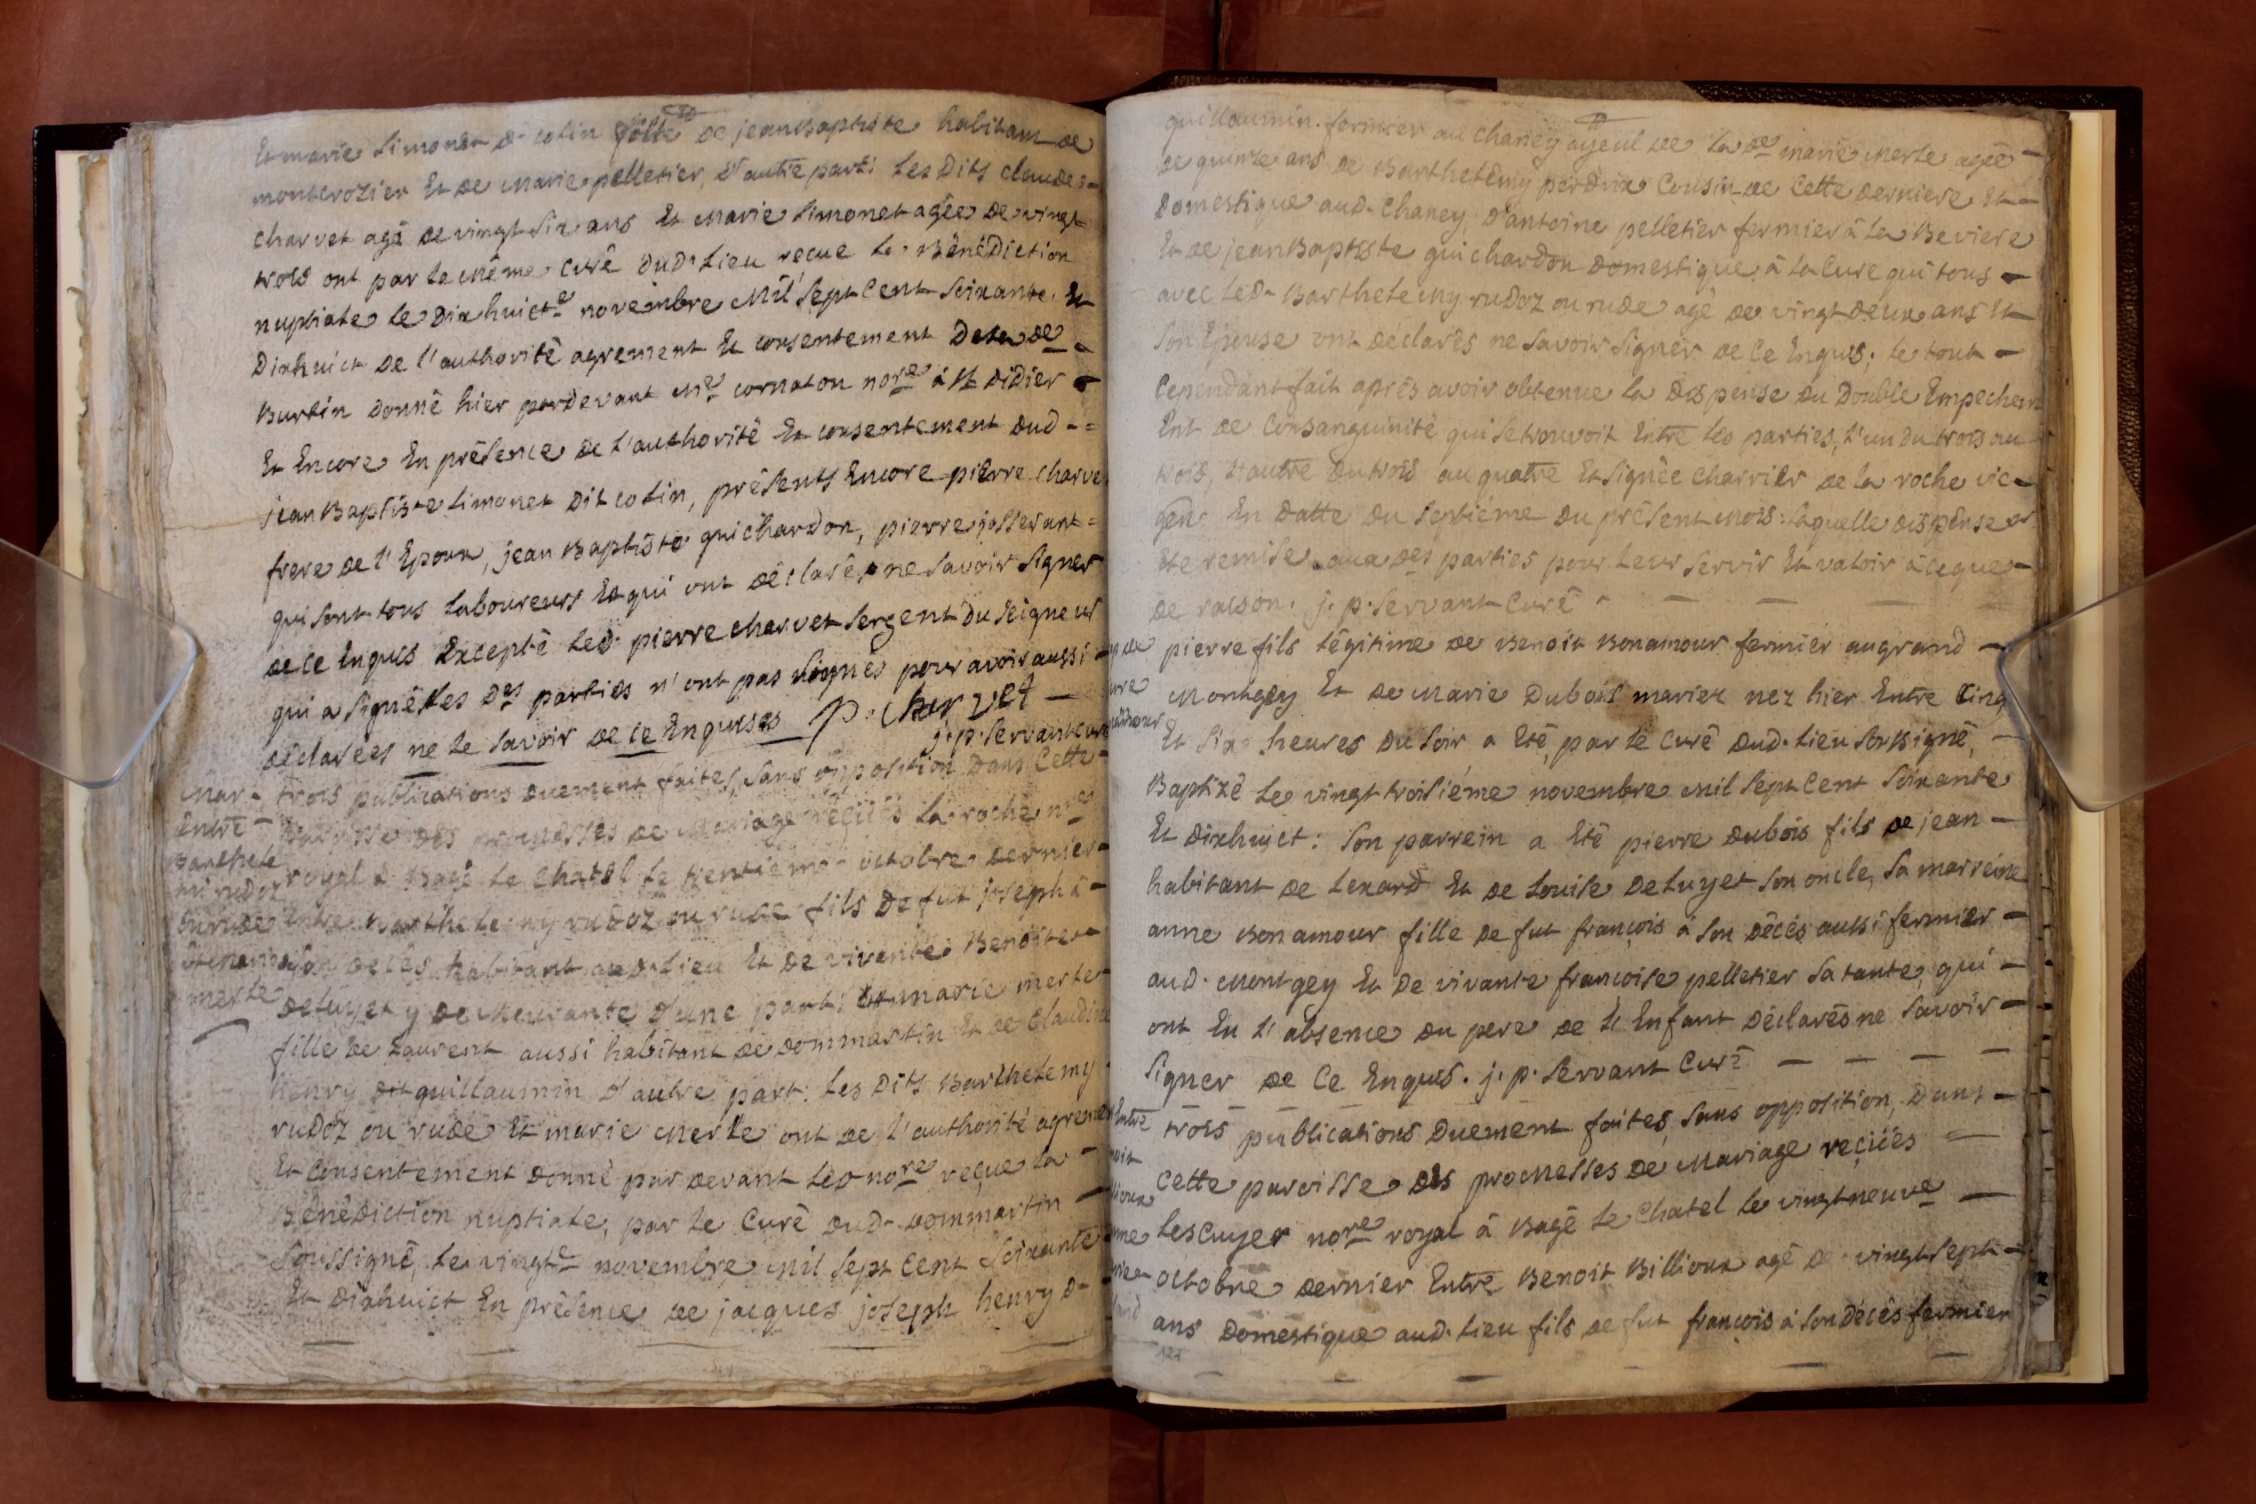 Et marie Simonet d. colin fille de jean Baptiste habitant de
montcrozier Et de Marie pelletier, d'autre part: les Dits claude
charvet agé de vingt six ans Et Marie Simonet agée de vingt
trois ont par le même curé dud. Lieu reçue la Bénédiction
nuptiale le Dixhuict.e novembre Mil Sept Cent Soixante Et
Dixhuict de l'authorité agrement Et consentement de la de
Burtin donné hier pardevant M.e cornaton nore à St Didier
Et Encore En présence de l'authorité Et consentement dud
jean Baptiste Simonet dit colin, présents Encore pierre charvet
frere de l'Epoux, jean Baptiste guichardon, pierre josserant
qui sont tous laboureurs Et qui ont déclarés ne savoir signer
de ce Enquis Excepté led. pierre charvet Sergent du Seigneur
qui a signé, les des parties n'ont pas signés pour avoir aussi
déclarées ne le savoir de ce Enquises p. charvet
j. p. Servant curé
mar.
entre
Barthele
mi rudoz
ou rude
et marie
merle
trois publications duement faites, sans opposition dans Cette
paroisse des promesses de Mariage reçües La roche n.re
royal à Bagé le chatel le trentieme octobre dernier
Entre Barthelemy rudoz ou rude fils de fut joseph à
son décès habitant aud. Lieu Et de vivante Benoite
deluyet y demeurante d'une part: Et marie merle
fille de Laurent aussi habitant de dommartin Et de claudine
henry dit guillaumin d'autre part. Les Dits Barthelemy
rudoz ou rude Et marie Merle ont de l'authorité agremen
Et Consentement donné par devant led nore reçue la
Bénédiction nuptiale, par le Curé dud. dommartin
soussigné, le vingt.e novembre mil sept cent soixante
Et Dixhuict En présence de jacques joseph henry d.
guillaumin. fermier au chaney ayeul de la de marie Merle agée
de quinze ans de Barthelemy perdrix Cousin de Cette derniere Et
Domestique aud. Chaney, d'antoine pelletier fermier à la Beviere
Et de jean Baptiste guichardon domestique à la Cure qui tous
avec led. Barthelemy rudoz ou rude agé de vingt deux ans Et
son Epouse ont déclarés ne savoir signer de ce Enquis; le tout
Cependant fait après avoir obtenue la Dispense du Double Empechem
Ent de Consanguinité qui se trouvoit Entre les parties, l'un du trois au
trois, l'autre du trois au quatre Et signée charrier de la roche vic
gen. En datte du septiéme du présent mois: laquelle dispense a
Eté remise aux des parties pour leur servir Et valoir à ce que
de raison. j. p. Servant Curé
pierre fils légitime de Benoit Bonamour fermier au grand
Montgey Et de Marie Dubois mariez nez hier Entre Cinq
Et six heures du soir a Eté, par le Curé dud. Lieu soussigné,
Baptizé le vingt troisiéme novembre mil sept Cent soixante
Et dixhuict: son parrein a Eté pierre dubois fils de jean
habitant de Lexard Et de Louise Deluyet son oncle, sa marreine
anne Bonamour fille de fut françois à son décès aussi fermier
aud. Montgey Et de vivante francoise pelletier sa tante, qui
ont En l'absence du pere de l'Enfant déclarés ne savoir
signer de Ce Enquis. j. p. Servant Curé
Entre
trois publications duement faites, sans opposition, dans
Cette paroisse des promesses de Mariage reçües
Lescuyer nore royal à Bagé le Chatel le vingtneuve
octobre dernier Entre Benoit Billioux agé de vingt sept
ans domestique aud. Lieu fils de fut françois à son décès fermier